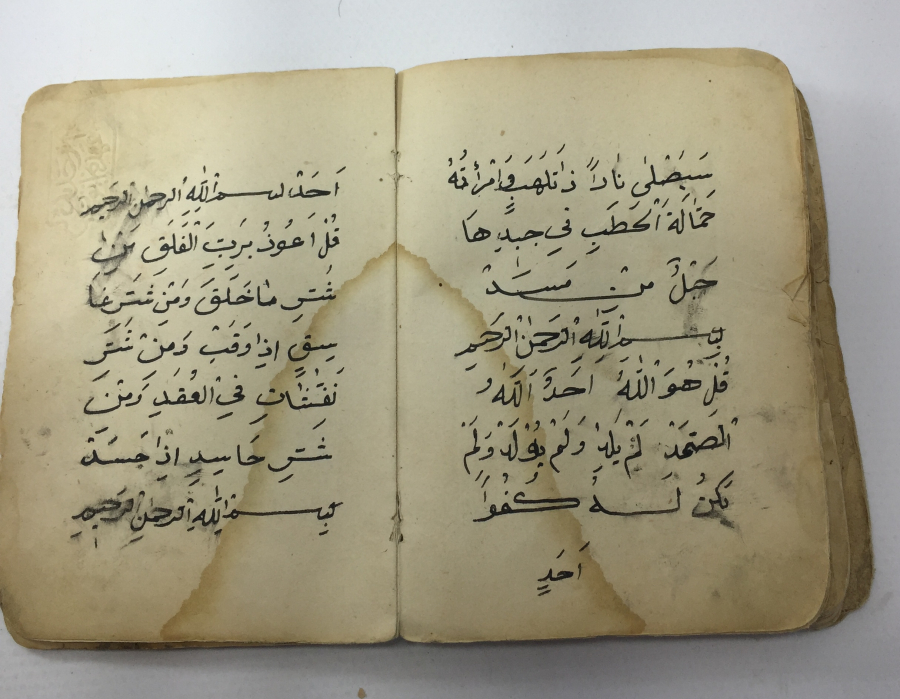 سَيَصْلٰى نَاراً ذَاتَلَهَبٍ وَامْرَأَتُهُ
حَمَّالَةَ الْحَطَبِ فِي جِيدِ هَا
حَبْلٌ مِنْ مَسَدْ
بِسْمِ اللّٰهِ الرَّحْمٰنِ الرَّحِيمِ
قُلْ هُوَ اللّٰهُ اَحَدٌ اَللّٰهُ
الْصَّمَدْ لَمْ يَلِدْ وَلَمْ يُوْلَدْ وَلَمْ
يَكُنْ لَهُ كُفُواً
اَحَدٍ
اَحَدْ بسم اللّٰهِ الرحمٰنِ الرَحيمِ
قُلْ اَعُوذُ بِرَبِّ الْفَلَقِ مِنْ
شَّرِ مَا خَلَقَ وَمِنْ شَّرِ غَا
سِقٍ اِذِا وَقَبْ وَمِنْ شَّرِ
نَفَّثَاتِ فِي الْعُقَدِ وَمِنْ
شَّرِ حَاسِدٍ اِذَا حَسَدْ
بِسْمِ اللّٰهِ الرَّحْمٰنِ الرَّحِيمِ